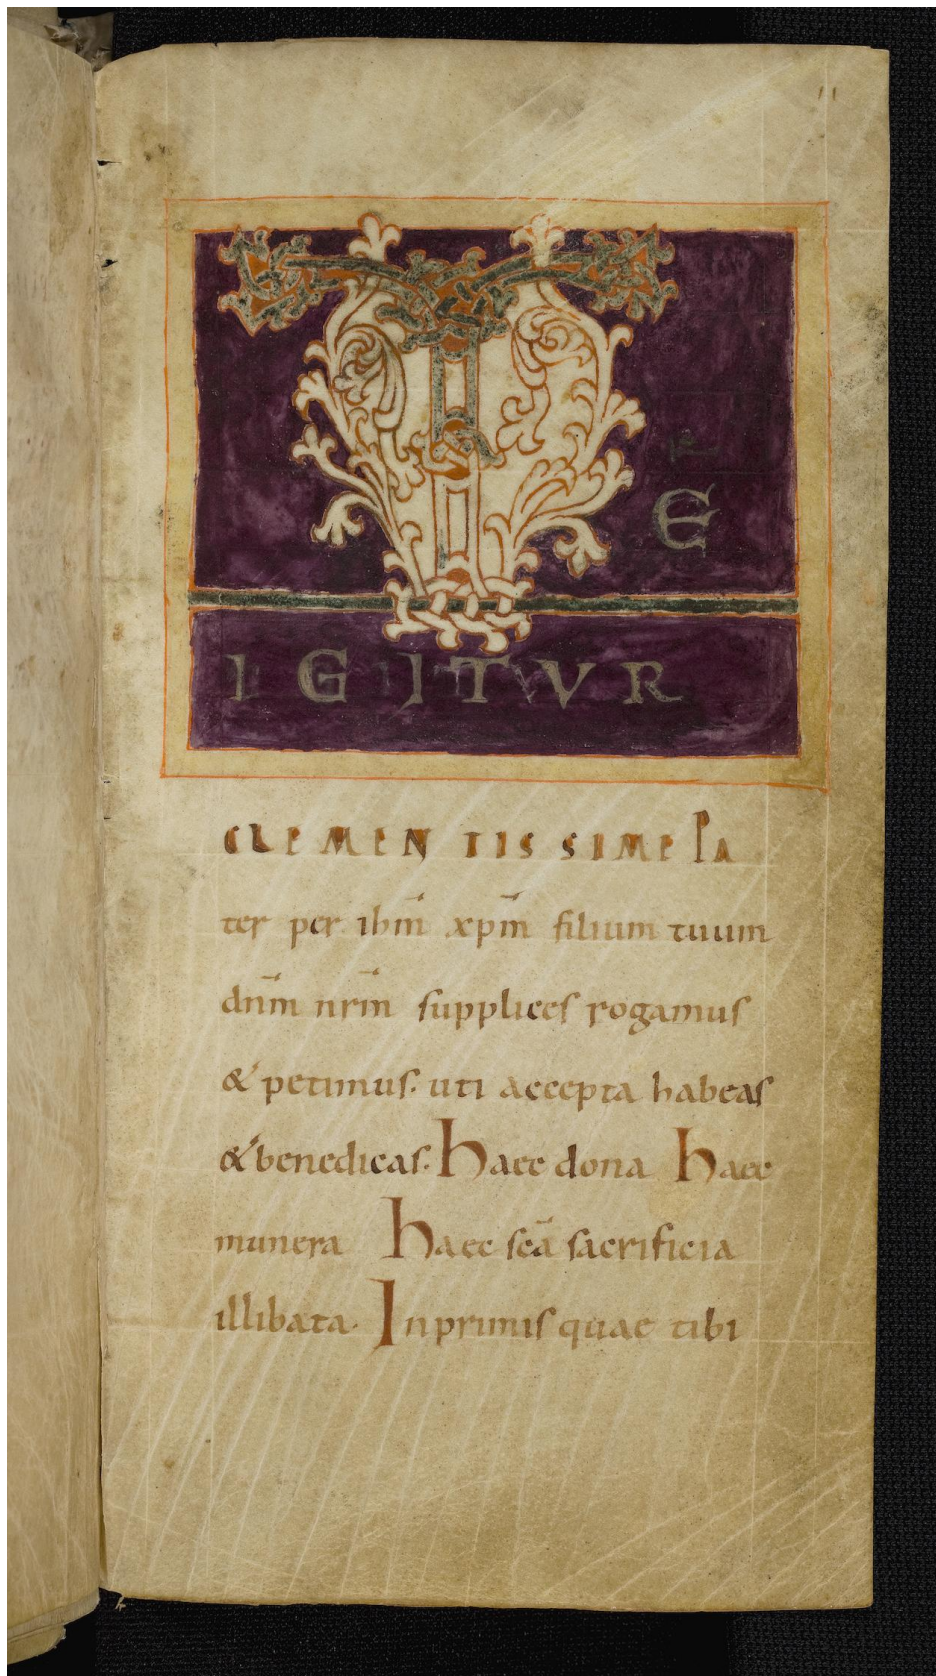 TE
IGITVR
CLEMENTISSIME PA
ter per ihm̄ xpm̄ filium tuum
dnm̄ nrm̄ supplices rogamus
& petimus. uti accepta habeas
& benedicas. Haec dona Haec
munera Haec scā sacrificia
illibata. Inprimis quae tibi